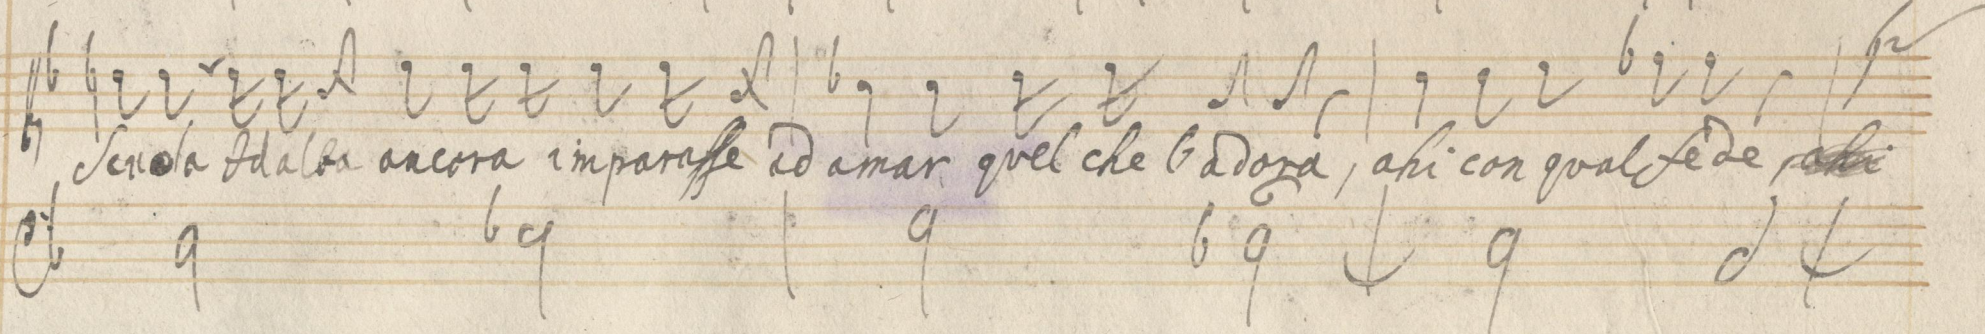 Scuola Adalba ancora imparasse ad amar quel che l'adora, ahi con qual fede,